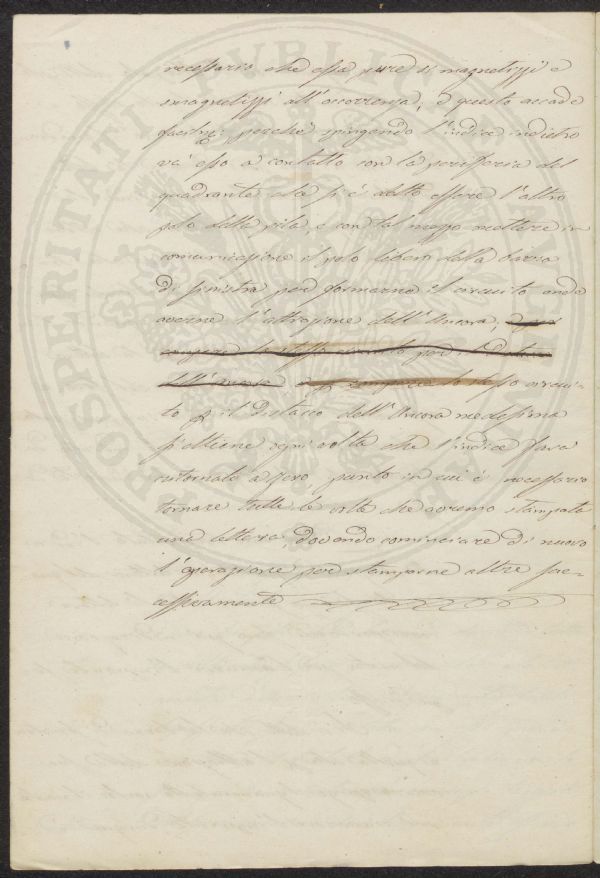 necessario che essa pure si magnetizzi e
smagnetizzi all'occorrenza, e questo accade
perchè spingendo l'indice indietro
va esso a contatto con la periferia del
quadrante che si è detto essere l'altro
polo della pila, e con tal mezzo mettere in
comunicazione il polo libero della barra
di sinistra per formarne il circuito onde
avvene l'attrazione dell'Ancora,
compere lo stesso circuito per il Distacco
dell'Ancora lo stesso circui-
to p il Distacco dell'Ancora medesima
si ottiene ogni volta che l'indice sarà
ritornato a zero, punto in cui è necessario
tornare tutte le volte che avremo stampato
una lettera, dovendo cominciare di nuovo
l'operazione per stamparne altre suc-
cessivamente